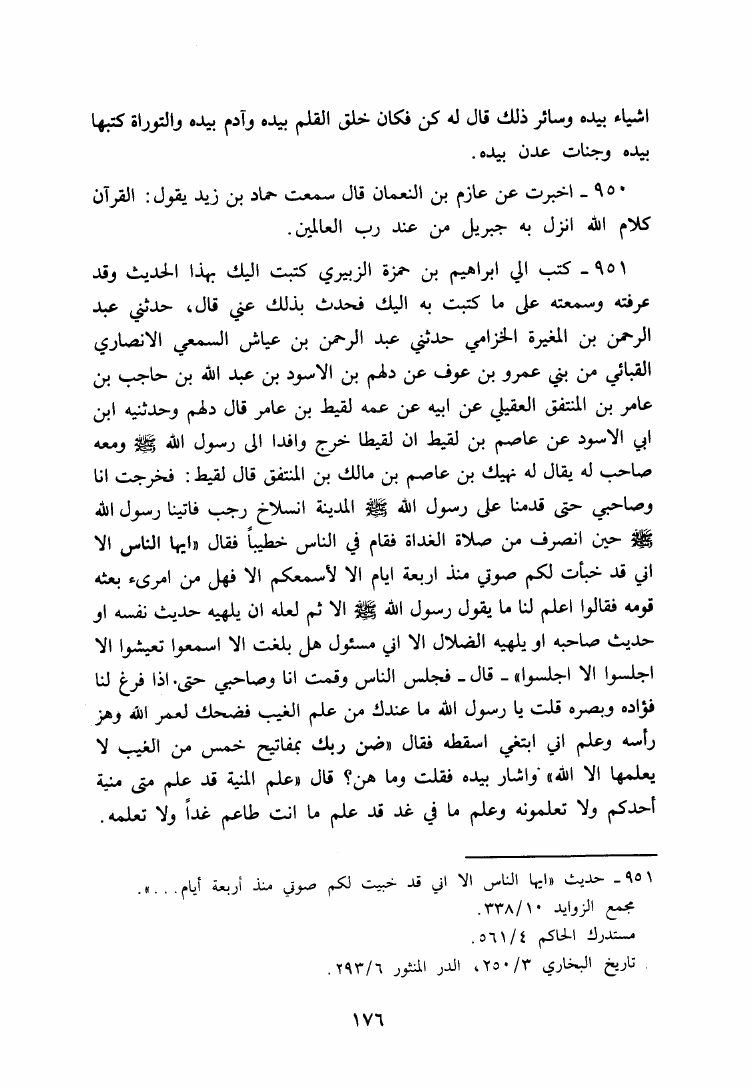 اشياء بيده وسائر ذلك قال له كن فكان خلق القلم بيده وآدم بيده والتوراة كتبها
بيده وجنات عدن بيده.
٩٥٠ ـ اخبرت عن عازم بن النعمان قال سمعت حماد بن زيد يقول: القرآن
كلام الله انزل به جبريل من عند رب العالمين.
٩٥١ ـ كتب الي ابراهيم بن حمزة الزبيري كتبت اليك بهذا الحديث وقد
عرفته وسمعته على ما كتبت به اليك فحدث بذلك عني قال، حدثني عبد
الرحمن بن المغيرة الخزامي حدثني عبد الرحمن بن عياش السمعي الانصاري
القبائي من بني عمرو بن عوف عن دلهم بن الاسود بن عبد الله بن حاجب بن
عامر بن المنتفق العقيلي عن ابيه عن عمه لقيط بن عامر قال دلهم وحدثنيه ابن
ابي الاسود عن عاصم بن لقيط ان لقيطا خرج وافدا الى رسول الله ﷺ ومعه
صاحب له يقال له نهيك بن عاصم بن مالك بن المنتفق قال لقيط: فخرجت انا
وصاحبي حتى قدمنا على رسول الله ﷺ المدينة انسلاخ رجب فاتينا رسول الله
ﷺ حين انصرف من صلاة الغداة فقام في الناس خطيباً فقال «ايها الناس الا
اني قد خبأت لكم صوتي منذ اربعة ايام الا لأسمعكم الا فهل من امرىء بعثه
قومه فقالوا اعلم لنا ما يقول رسول الله ﷺ الا ثم لعله ان يلهيه حديث نفسه او
حديث صاحبه او يلهيه الضلال الا اني مسئول هل بلغت الا اسمعوا تعيشوا الا
اجلسوا الا اجلسوا» ـ قال ـ فجلس الناس وقمت انا وصاحبي حتى اذا فرغ لنا
فؤاده وبصره قلت يا رسول الله ما عندك من علم الغيب فضحك لعمر الله وهز
رأسه وعلم اني ابتغي اسقطه فقال «ضن ربك بمفاتيح خمس من الغيب لا
يعلمها الا الله» واشار بيده فقلت وما هن؟ قال «علم المنية قد علم متى منية
أحدكم ولا تعلمونه وعلم ما في غد قد علم ما انت طاعم غداً ولا تعلمه.
٩٥١ ـ حديث «ايها الناس الا اني قد خبيت لكم صوتي منذ أربعة أيام...».
مجمع الزوايد ٣٣٨/١٠.
مستدرك الحاكم ٥٦١/٤.
تاريخ البخاري ٢٥٠/٣، الدر المنثور ٢٩٣/٦.
١٧٦